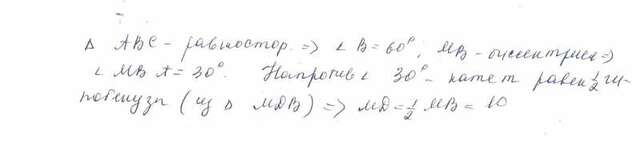 Δ ABC - равностор. => ∠ B = 60°, MB - биссектриса =>
∠ MBA = 30°. Напротив ∠ 30° - катет равен 1/2 ги-
потенузы (из Δ MDB) => MD = 1/2 MB = 10